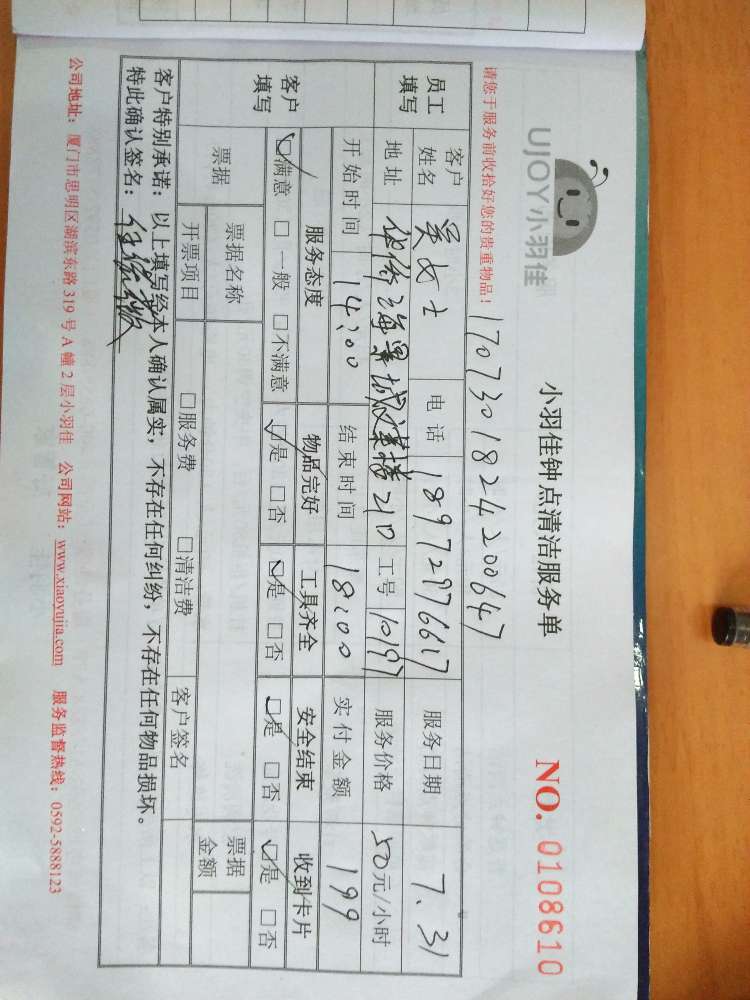 UJOY小羽佳
小羽佳钟点清洁服务单
NO. 0108610
请您于服务前收拾好您的贵重物品！
1707301824200647
员工填写 客户姓名 吴女士 电话 18972976617 服务日期 7.31
地址 海景城 21D 工号 10197 服务价格 50元/小时
开始时间 14:00 结束时间 18:00 实付金额 199
客户填写 服务态度 物品完好 工具齐全 安全结束 收到卡片
☑满意 □一般 □不满意 ☑是 □否 ☑是 □否 ☑是 □否 ☑是 □否
票据 票据名称 票据金额
开票项目 □服务费 □清洁费 客户签名
客户特别承诺：以上填写经本人确认属实，不存在任何纠纷，不存在任何物品损坏。
特此确认签名：
公司地址：厦门市思明区湖滨东路 319 号 A 幢 2 层小羽佳 公司网站：www.xiaoyujia.com 服务监督热线：0592-5888123